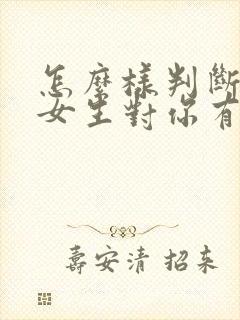 怎麼樣判斷
女生對你有
壽安清 招来